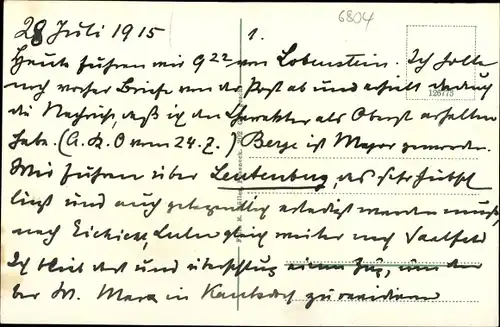 28 Juli 1915 1. 6804
Heute fuhren wir 9 22 von Lobenstein. Ich holte
noch vorher Briefe von der Post ab und erhielt dadurch
126775
die Nachricht, daß ich den Charakter als Oberst erhalten
habe. (A.K.O vom 24.7.) Berge ist Major geworden.
Wir fuhren über Leutenberg, das sehr hübsch
liegt und auch gelegentlich erledigt werden muß,
nach Eichicht, Lulu gleich weiter nach Saalfeld
Ich blieb dort und überschlug einen Zug, um den
M. Marx in Kaulsdorf zu